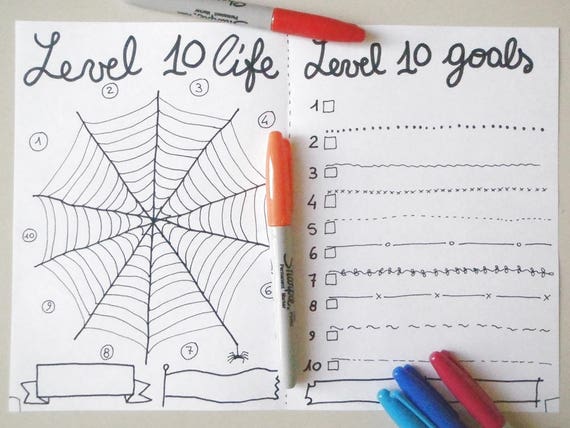 Level 10 life
2
3
1
4
10
6
9
8
7
Level 10 goals
1
2
3
4
5
6
7
8
9
10
Sharpie